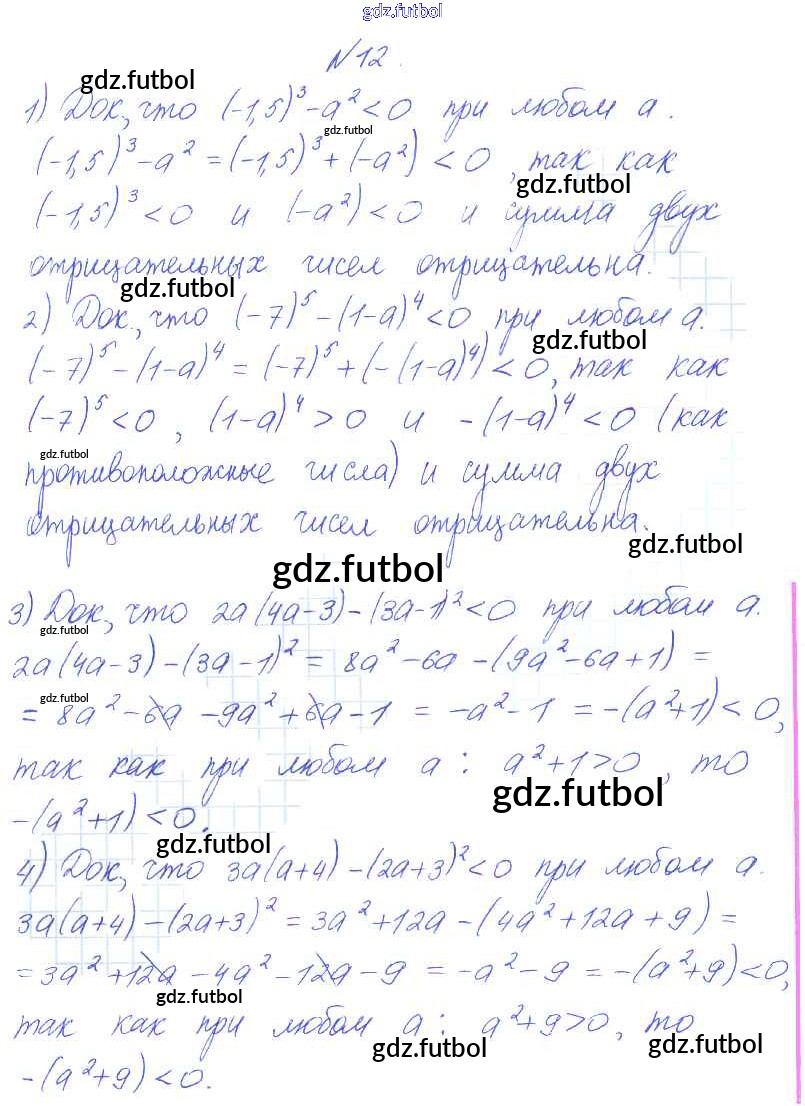 gdz.futbol
N12.
gdz.futbol
1) Док, что (-1,5)³-a²<0 при любом a.
gdz.futbol
(-1,5)³-a² = (-1,5)³+(-a²) < 0, так как
gdz.futbol
(-1,5)³<0 и (-a²)<0 и сумма двух
отрицательных чисел отрицательна.
gdz.futbol
2) Док., что (-7)⁵-(1-a)⁴<0 при любом a.
gdz.futbol
(-7)⁵-(1-a)⁴ = (-7)⁵+(-(1-a)⁴)<0, так как
(-7)⁵<0, (1-a)⁴>0 и -(1-a)⁴<0 (как
gdz.futbol
противоположные числа) и сумма двух
отрицательных чисел отрицательна.
gdz.futbol
gdz.futbol
3) Док, что 2a(4a-3)-(3a-1)²<0 при любом a.
gdz.futbol
2a(4a-3)-(3a-1)² = 8a²-6a-(9a²-6a+1) =
gdz.futbol
= 8a²-6a-9a²+6a-1 = -a²-1 = -(a²+1)<0,
так как при любом a: a²+1>0, то
gdz.futbol
-(a²+1)<0.
gdz.futbol
4) Док, что 3a(a+4)-(2a+3)²<0 при любом a.
3a(a+4)-(2a+3)² = 3a²+12a-(4a²+12a+9) =
=3a²+12a-4a²-12a-9 = -a²-9 = -(a²+9)<0,
gdz.futbol
так как при любом a: a²+9>0, то
gdz.futbol
gdz.futbol
-(a²+9)<0.